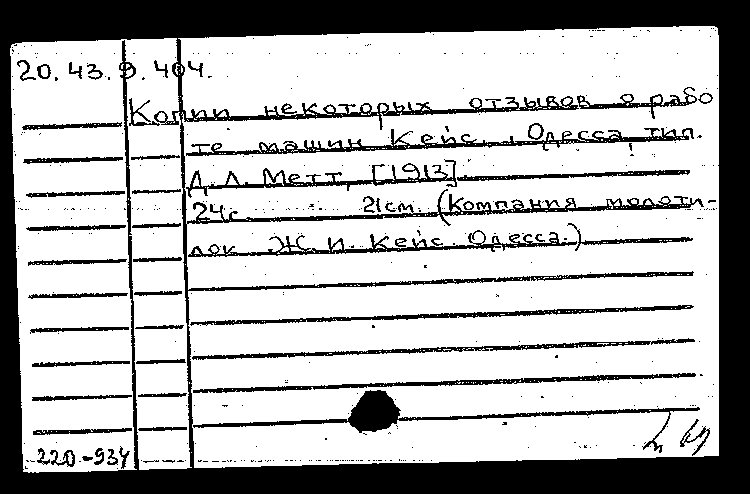 20.43.9.404.
Копии некоторых отзывов о рабо
те машин Кейс. Одесса, тип.
Д. Л. Метт, [1913].
24с. 21см. (Компания молоти-
лок Ж. И. Кейс. Одесса.)
220-934